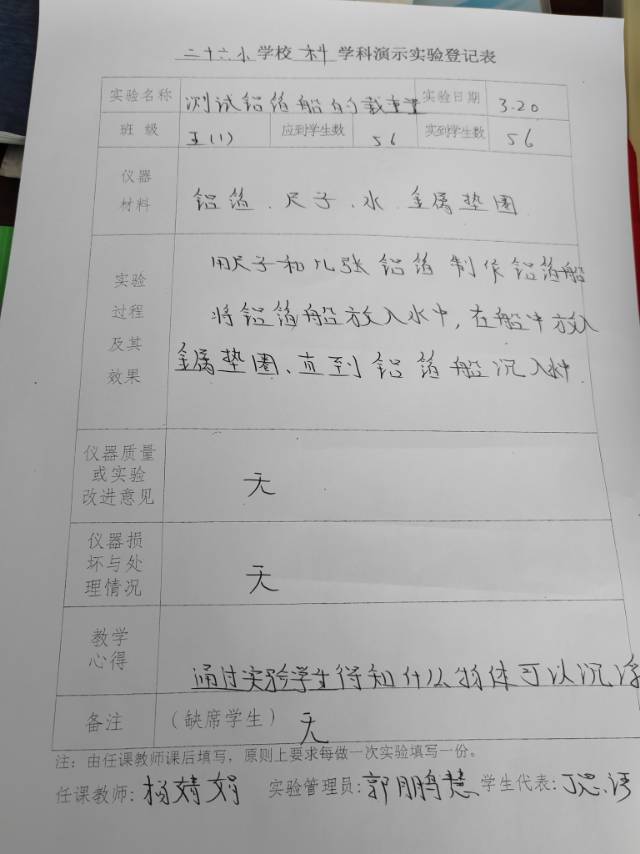 二十六小学校 科 学科演示实验登记表
实验名称 测试铝箔船的载重量 实验日期 3.20
班 级 五(1) 应到学生数 56 实到学生数 56
仪器
材料
铝箔、尺子、水、金属垫圈
实验
过程
及其
效果
用尺子和几张铝箔制作铝箔船
将铝箔船放入水中,在船中放入
金属垫圈、直到铝箔船沉入水中
仪器质量
或实验
改进意见
无
仪器损
坏与处
理情况
无
教学
心得
通过实验学生得知什么物体可以沉浮
备注 (缺席学生) 无
注:由任课教师课后填写,原则上要求每做一次实验填写一份。
任课教师:杨婧娟 实验管理员:郭鹏慧 学生代表: